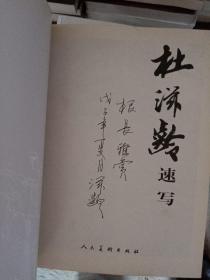 杜滋龄
速写
根长雅赏
戊子年夏月滋龄
人民美术出版社